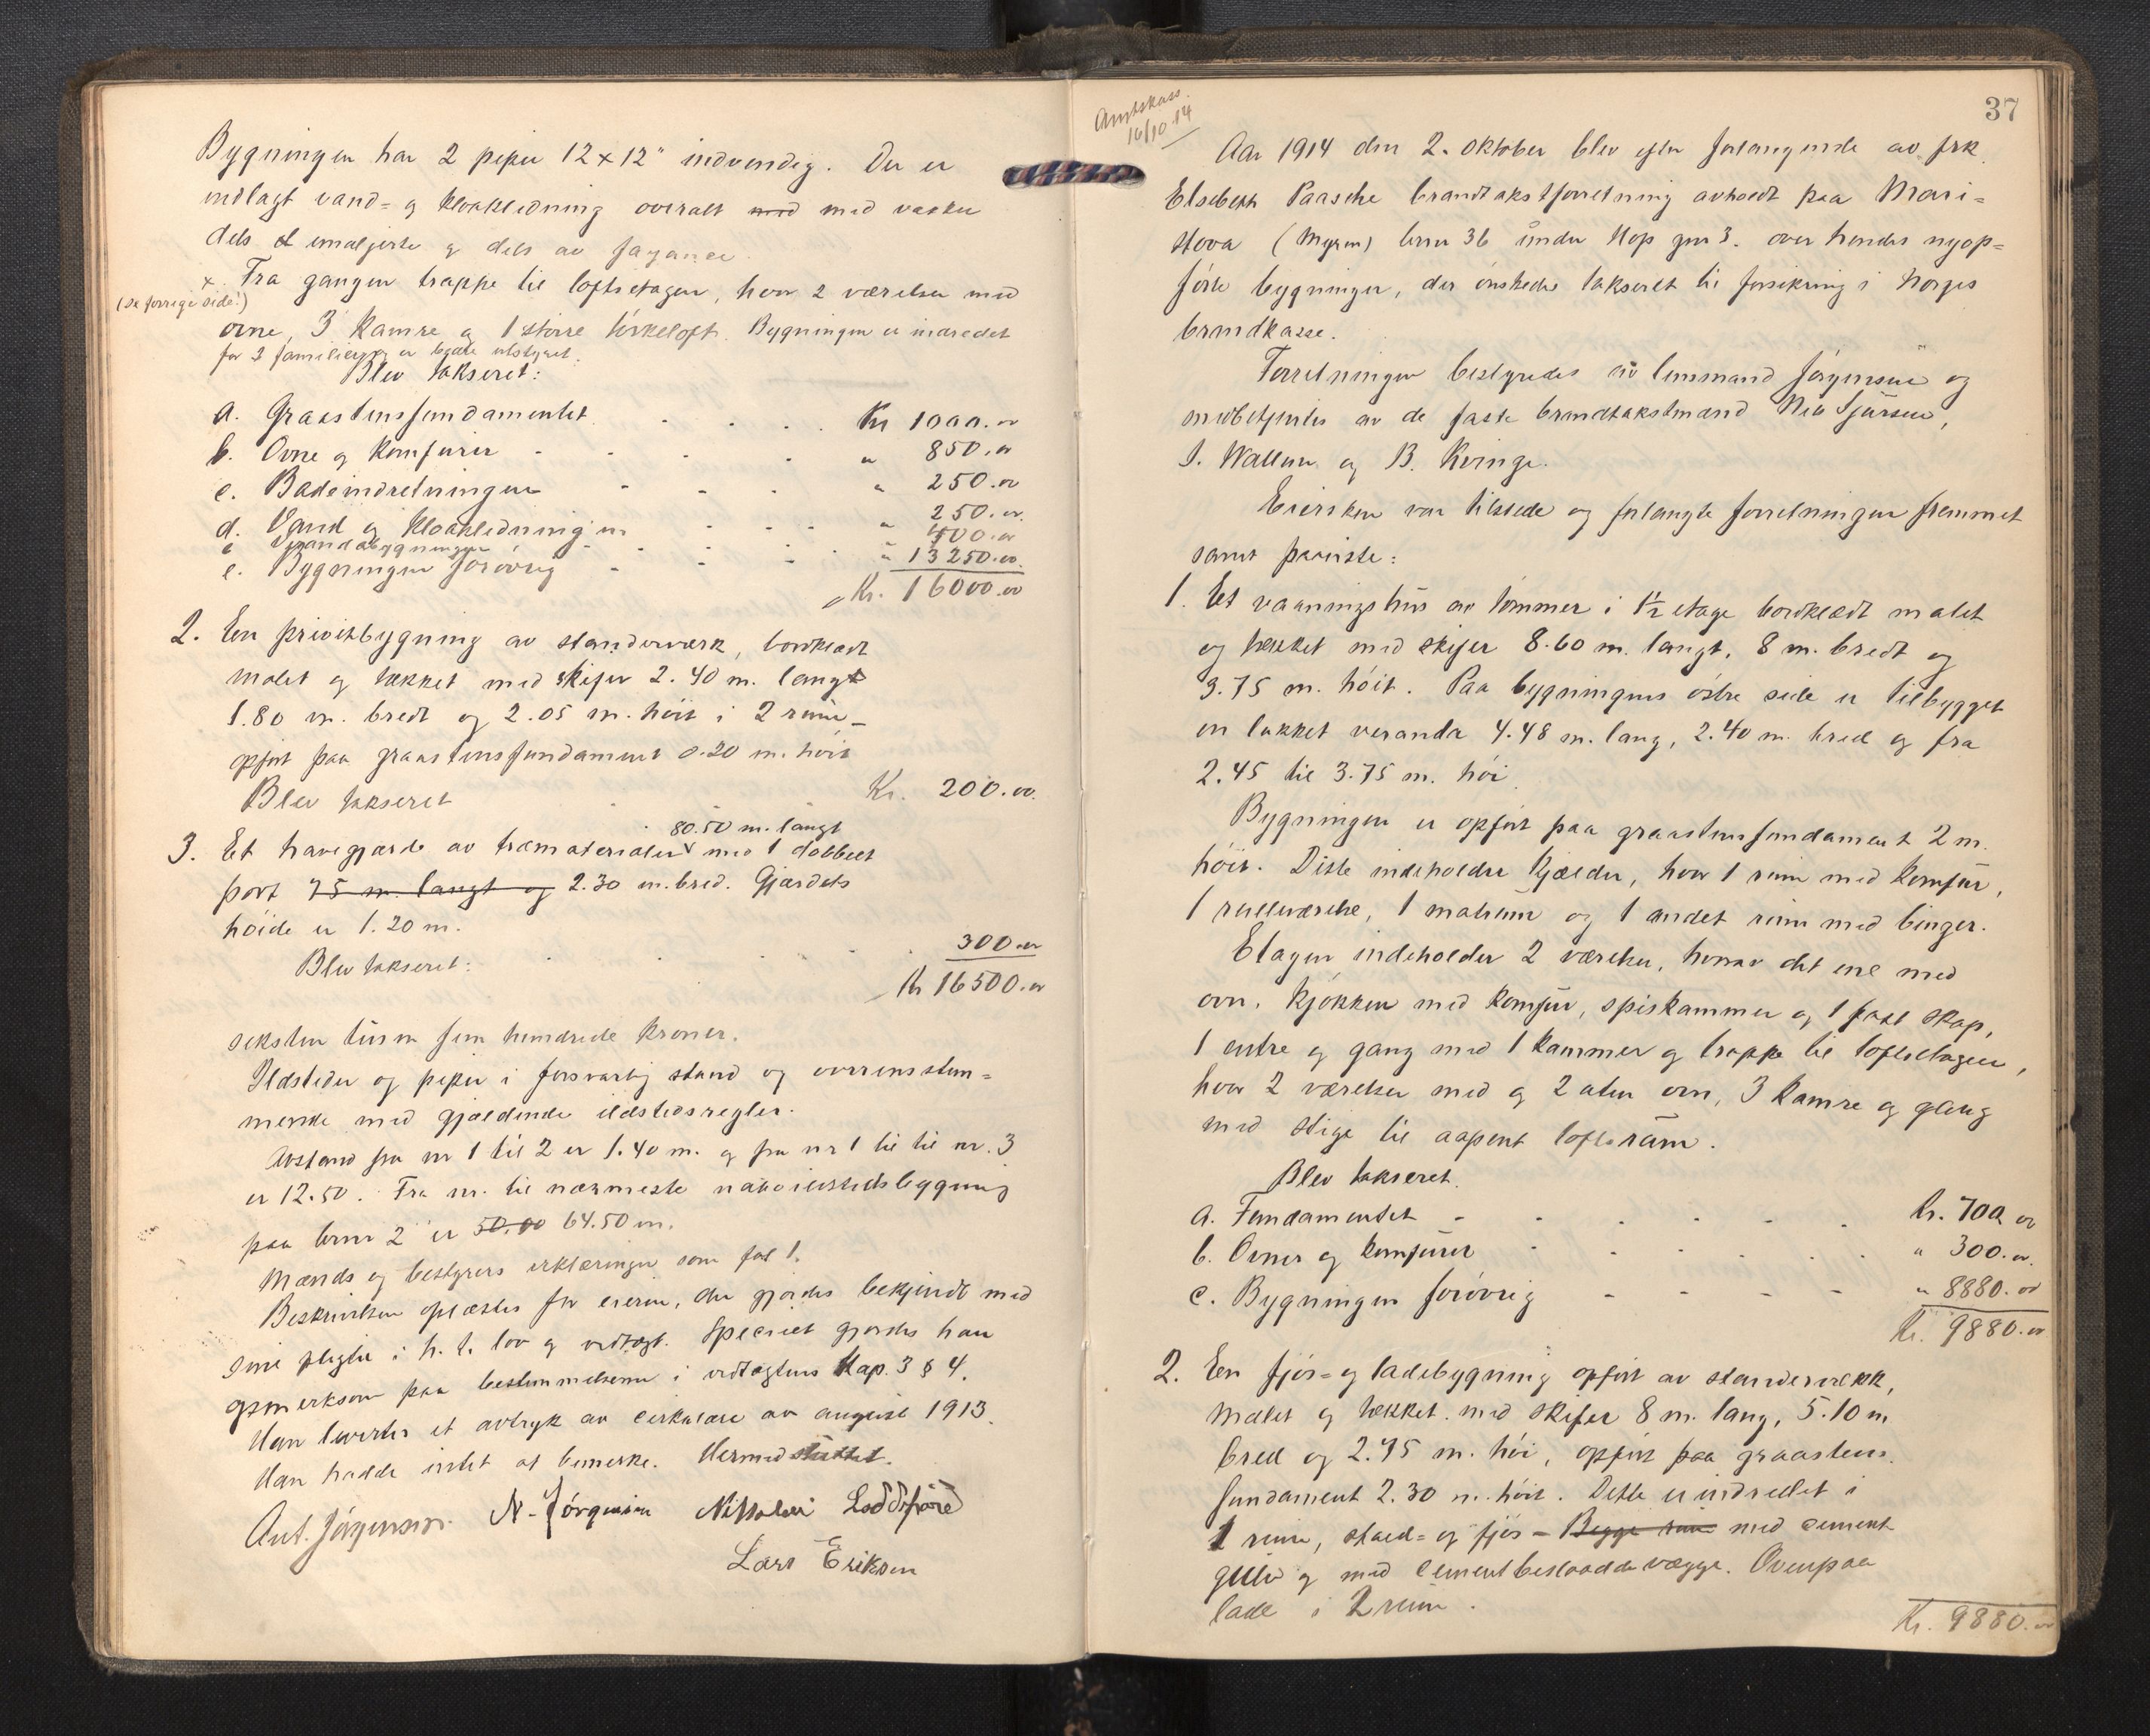 Bygningen har 2 piper 12 x 12" indvendig. Der er
indlagt vand- og kloakledning overalt med vasker
dels emaljerte og dels av fayance.
x Fra gangen trappe til loftsetagen, hvor 2 værelser med
(se forrige side!)
ovne, 3 kamre og 1 større tørkeloft. Bygningen er indredet
for 2 familier og er bedre utstyret.
Blev takseret:
a. Graastensfundamentet . . . . Kr 1000.00
b. Ovne og komfurer - - - - " 850.00
c. Badeindretningen - - - " 250.00
d. Vand og kloakledningen - - - " 250.00
e Verandabygningen - - - 400.00
e. Bygningen forøvrig - - - " 13250.00
Kr. 16000.00
2. En privetbygning av standerværk, bordklædt
malet og tækket med skifer 2.40 m. langt
1.80 m. bredt og 2.05 m. høit i 2 rum -
opført paa graastensfundament 0.20 m. høit
Blev takseret Kr. 200.00.
80.50 m. langt
3. Et havegjærde av træmaterialer med 1 dobbelt
port 75 m. langt og 2.30 m. bred. Gjærdets
høide er 1.20 m.
Blev takseret: . . . . 300.00
Kr 16500.00
seksten tusen fem hundrede kroner.
Ildsteder og piper i forsvarlig stand og overensstem-
mende med gjældende ildstedsregler.
Avstand fra nr 1 til 2 er 1.40 m. og fra nr 1 til til nr. 3
er 12.50. Fra nr. til nærmeste naboildstedsbygning
paa brnr 2 er 50.00 64.50 m.
Mænds og bestyrers erklæringer som fol 1.
Beskrivelsen oplæstes for eieren, der gjordes bekjendt med
sine pligter i h. t. lov og vedtægt. Specielt gjordes han
opmerksom paa bestemmelserne i vedtægtens Kap. 3 § 4.
Han levertes et avtryk av cirkulære av august 1913.
Han hadde intet at bemerke. Hermed sluttet.
Ant. Jørgensen. N. Jørgensen Nikolai Loddefjord
Lars Eriksen
Amtskass.
16/10 14
37
Aar 1914 den 2. oktober blev efter forlangende av frk.
Elsebeth Paasche brandtakstforretning avholdt paa Mari-
stova (Myren) brnr 36 under Hop gnr 3. over hendes nyop-
førte bygninger, der ønskedes takseret til forsikring i Norges
brandkasse.
Forretningen bestyredes av lensmand Jørgensen og
medbetjentes av de faste brandtakstmænd Nils Sjursen,
S. Wallem og B. Kvinge.
Eiersken var tilstede og forlangte forretningen fremmet
samt paaviste:
1. Et vaaningshus av tømmer i 1½ etage bordklædt malet
og tækket med skifer 8.60 m. langt, 8 m. bredt og
3.75 m. høit. Paa bygningens østre side er tilbygget
en lukket veranda 4.48 m. lang, 2.40 m. bred og fra
2.45 til 3.75 m. høi.
Bygningen er opført paa graastensfundament 2 m.
høit. Dette indeholder kjælder, hvor 1 rum med komfur,
1 rulleværelse, 1 matrum og 1 andet rum med binger.
Etagen indeholder 2 værelser, hvorav det ene med
ovn, kjøkken med komfur, spiskammer og 1 fast skap,
1 entre og gang med 1 kammer og trappe til loftsetagen,
hvor 2 værelser med og 2 uten ovn, 3 kamre og gang
med stige til aapent loftsrum.
Blev takseret.
a. Fundamentet - - - - - - kr. 700 00
b. Ovner og komfurer . . . . . " 300.00.
c. Bygningen forøvrig - - - - " 8880.00
Kr. 9880.00
2. Een fjøs- og ladebygning opført av standerverkk,
malet og tækket med skifer 8 m. lang, 5.10 m
bred og 2.75 m. høi, opført paa graastens
fundament 2.30 m. høit. Dette er indredet i
1 rum, stald- og fjøs - Begge rum med cement
gulv og med cementbeslaadde vægge. Ovenpaa
lade i 2 rum.
Kr. 9880.00